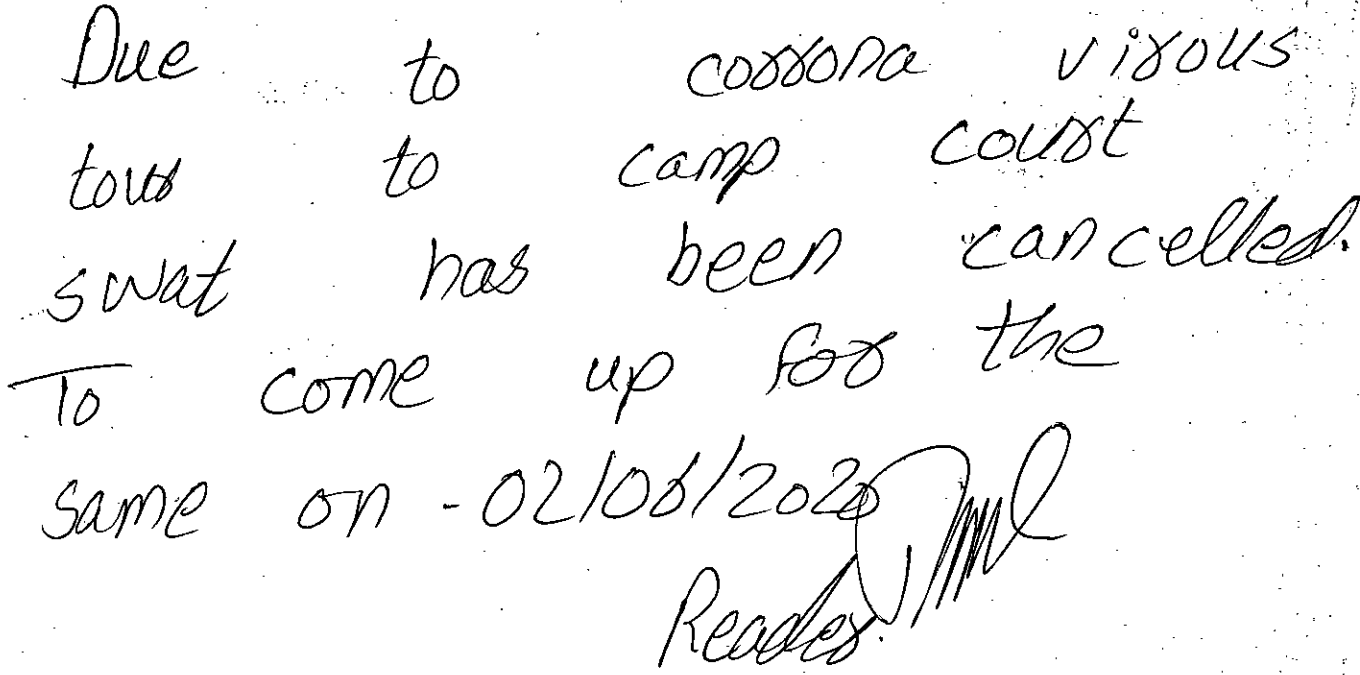 Due to corrona virous
tour to camp court
swat has been cancelled.
To come up for the
same on - 02/06/2020
Reader.